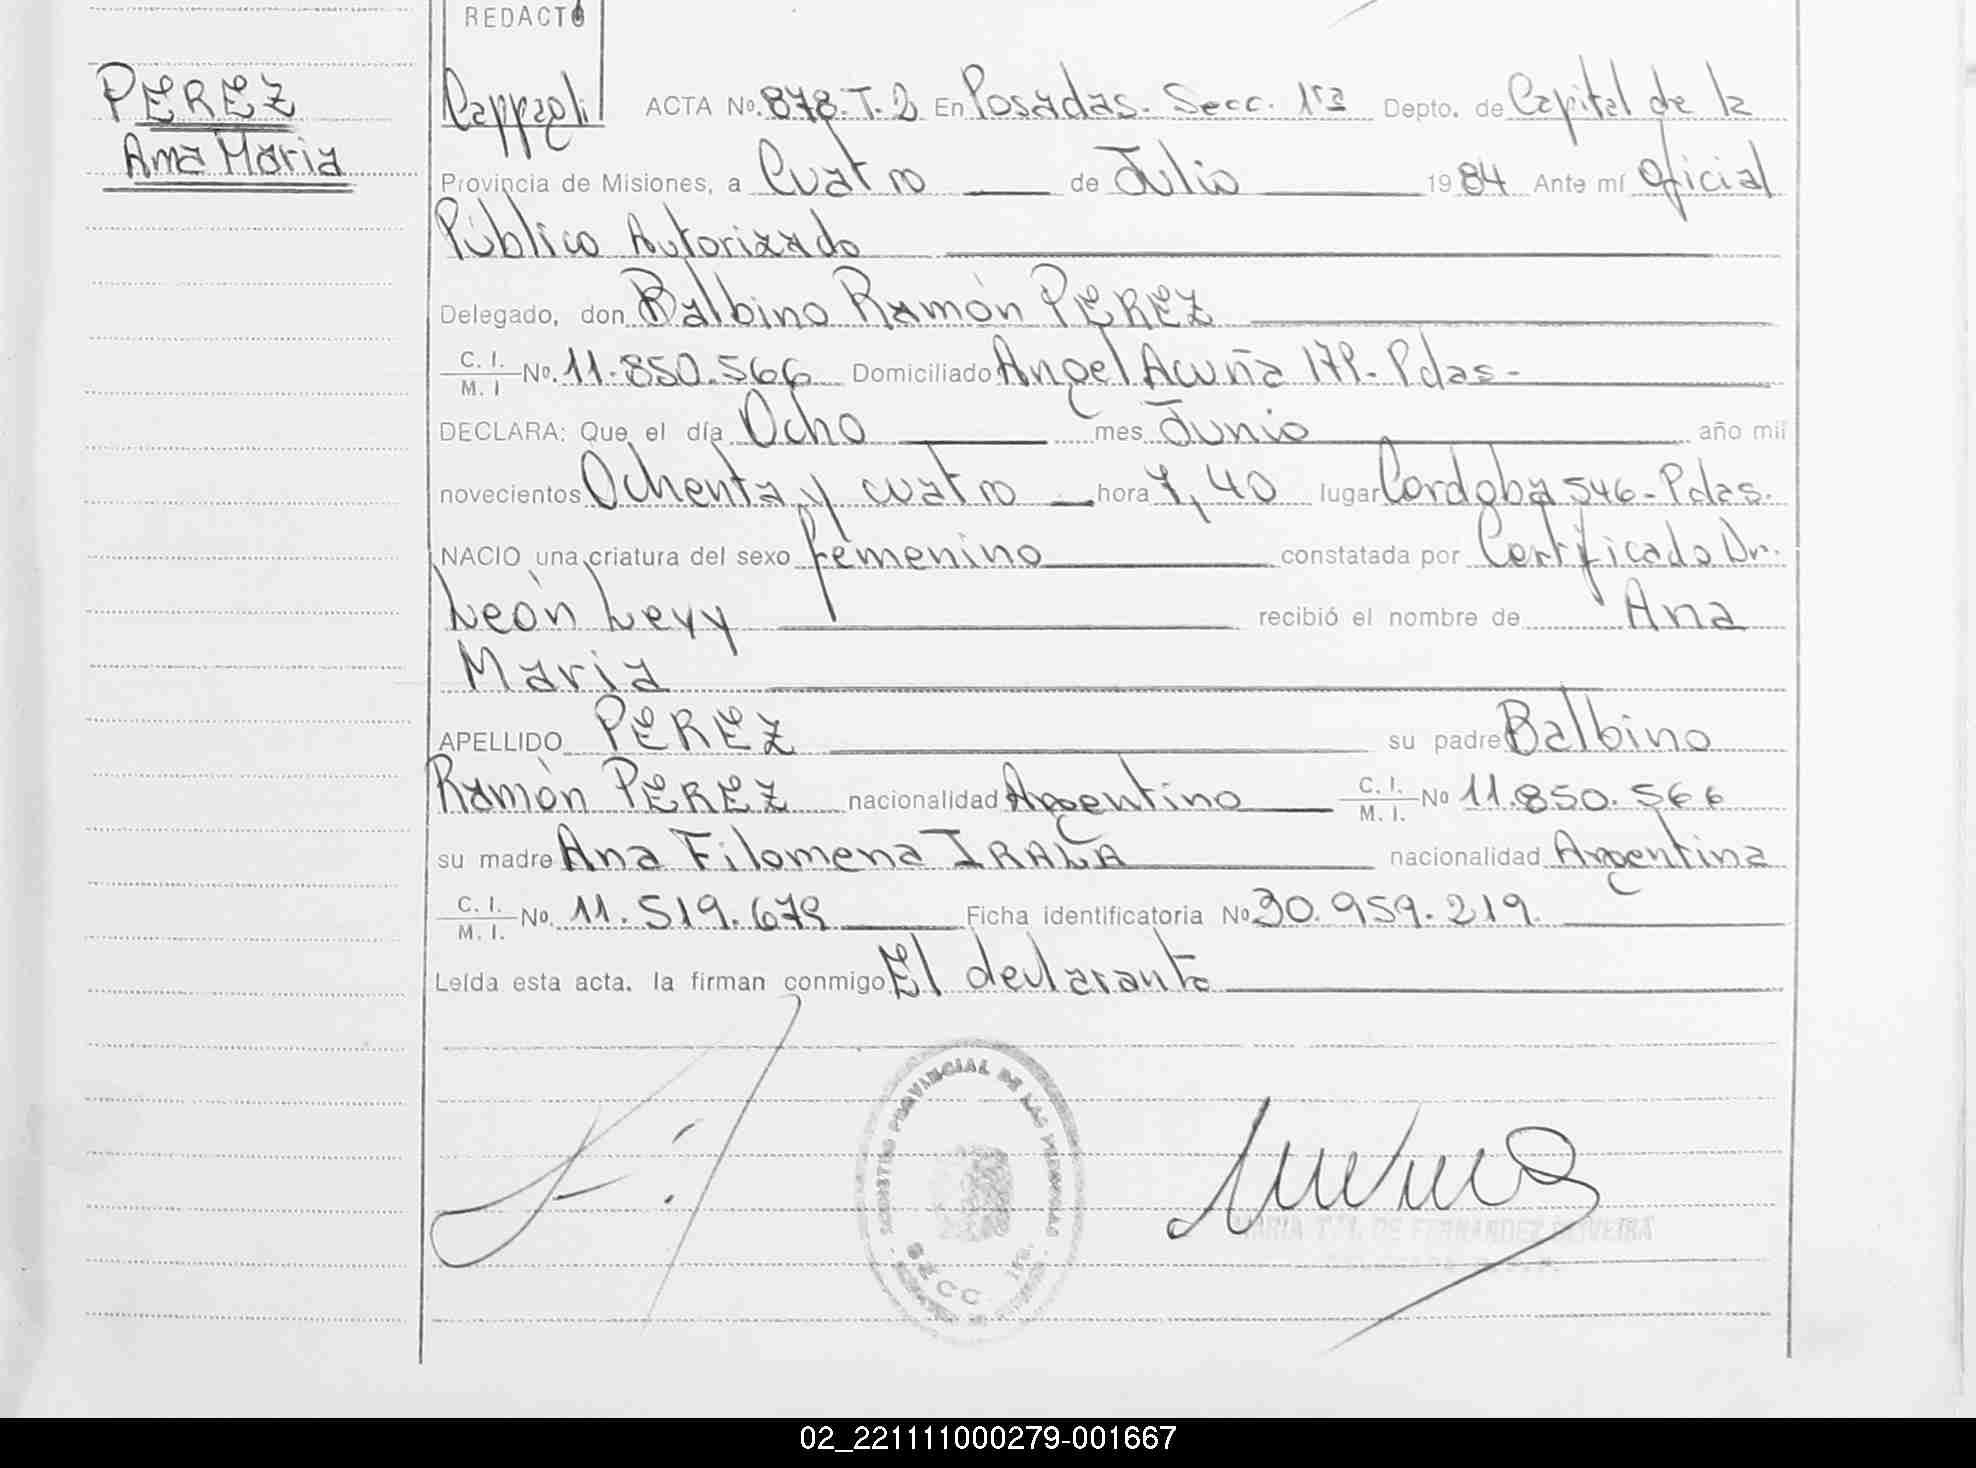 REDACTÓ
PEREZ
Ana Maria
Rappagli ACTA No. 878.T.2 En Posadas. Secc. 1ra Depto. de Capital de la
Provincia de Misiones, a Cuatro de Julio 19 84 Ante mí Oficial
Público Autorizado
Delegado, don Balbino Ramón PEREZ
C. I. / M. I No. 11.850.566 Domiciliado Angel Acuña 179- Pdas-
DECLARA: Que el día Ocho mes Junio año mil
novecientos Ochenta y cuatro hora 7,40 lugar Cordoba 546- Pdas.
NACIO una criatura del sexo femenino constatada por Certificado Dr.
León Levy recibió el nombre de Ana
Maria
APELLIDO PEREZ su padre Balbino
Ramón PEREZ nacionalidad Argentino C. I. / M. I. No 11.850.566
su madre Ana Filomena IRALA nacionalidad Argentina
C. I. / M. I. No. 11.519.679 Ficha identificatoria No 30.959.219.
Leída esta acta. la firman conmigo El declarante
PROVINCIAL DE LAS PERSONAS
SECC 1ra.
MARIA DE FERNANDEZ OLIVEIRA
02_221111000279-001667